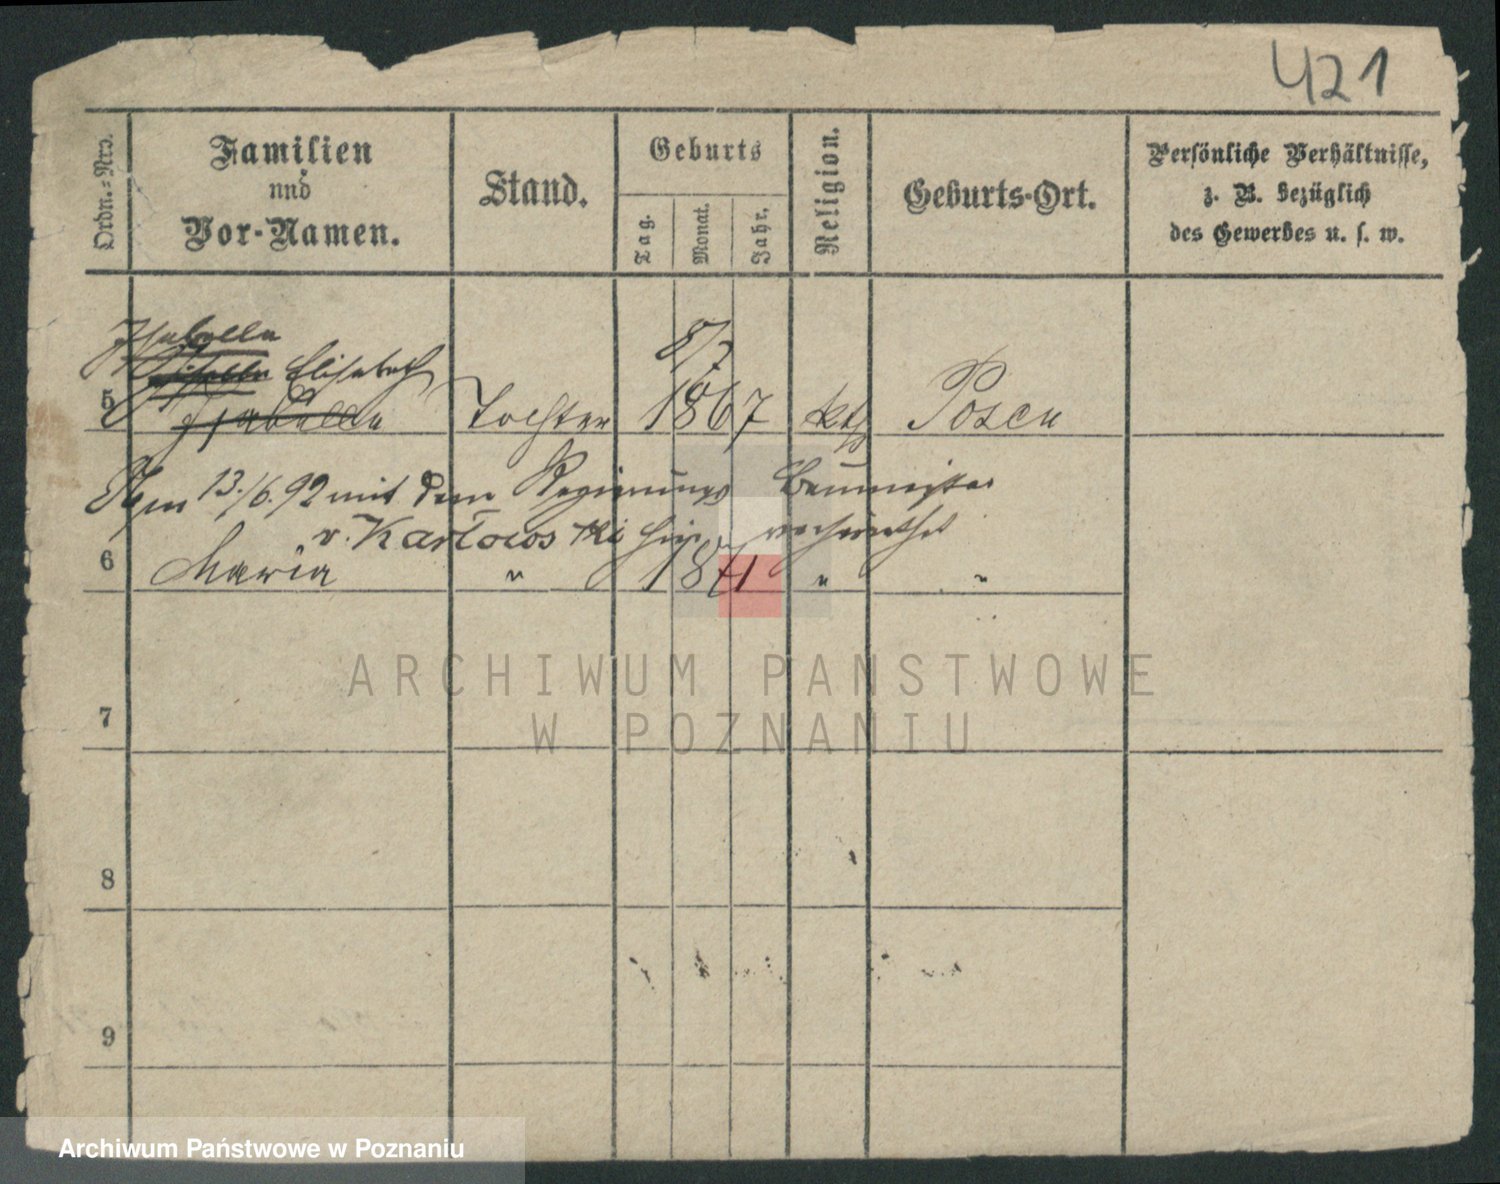 421
Ordn.-Nro.
Familien
und
Vor-Namen.
Stand.
Geburts
Tag.
Monat.
Jahr.
Religion.
Geburts-Ort.
Persönliche Verhältnisse,
z. B. bezüglich
des Gewerbes u. s. w.
Isabella
Elisabeth
8/7
5 Isabella Tochter 1867 kth Posen
13./6. 92 mit dem Regierungs Baumeister
v. hier verheirathet
6 Maria " 1871 " "
7
8
9
ARCHIWUM PANSTWOWE
W POZNANIU
Archiwum Państwowe w Poznaniu